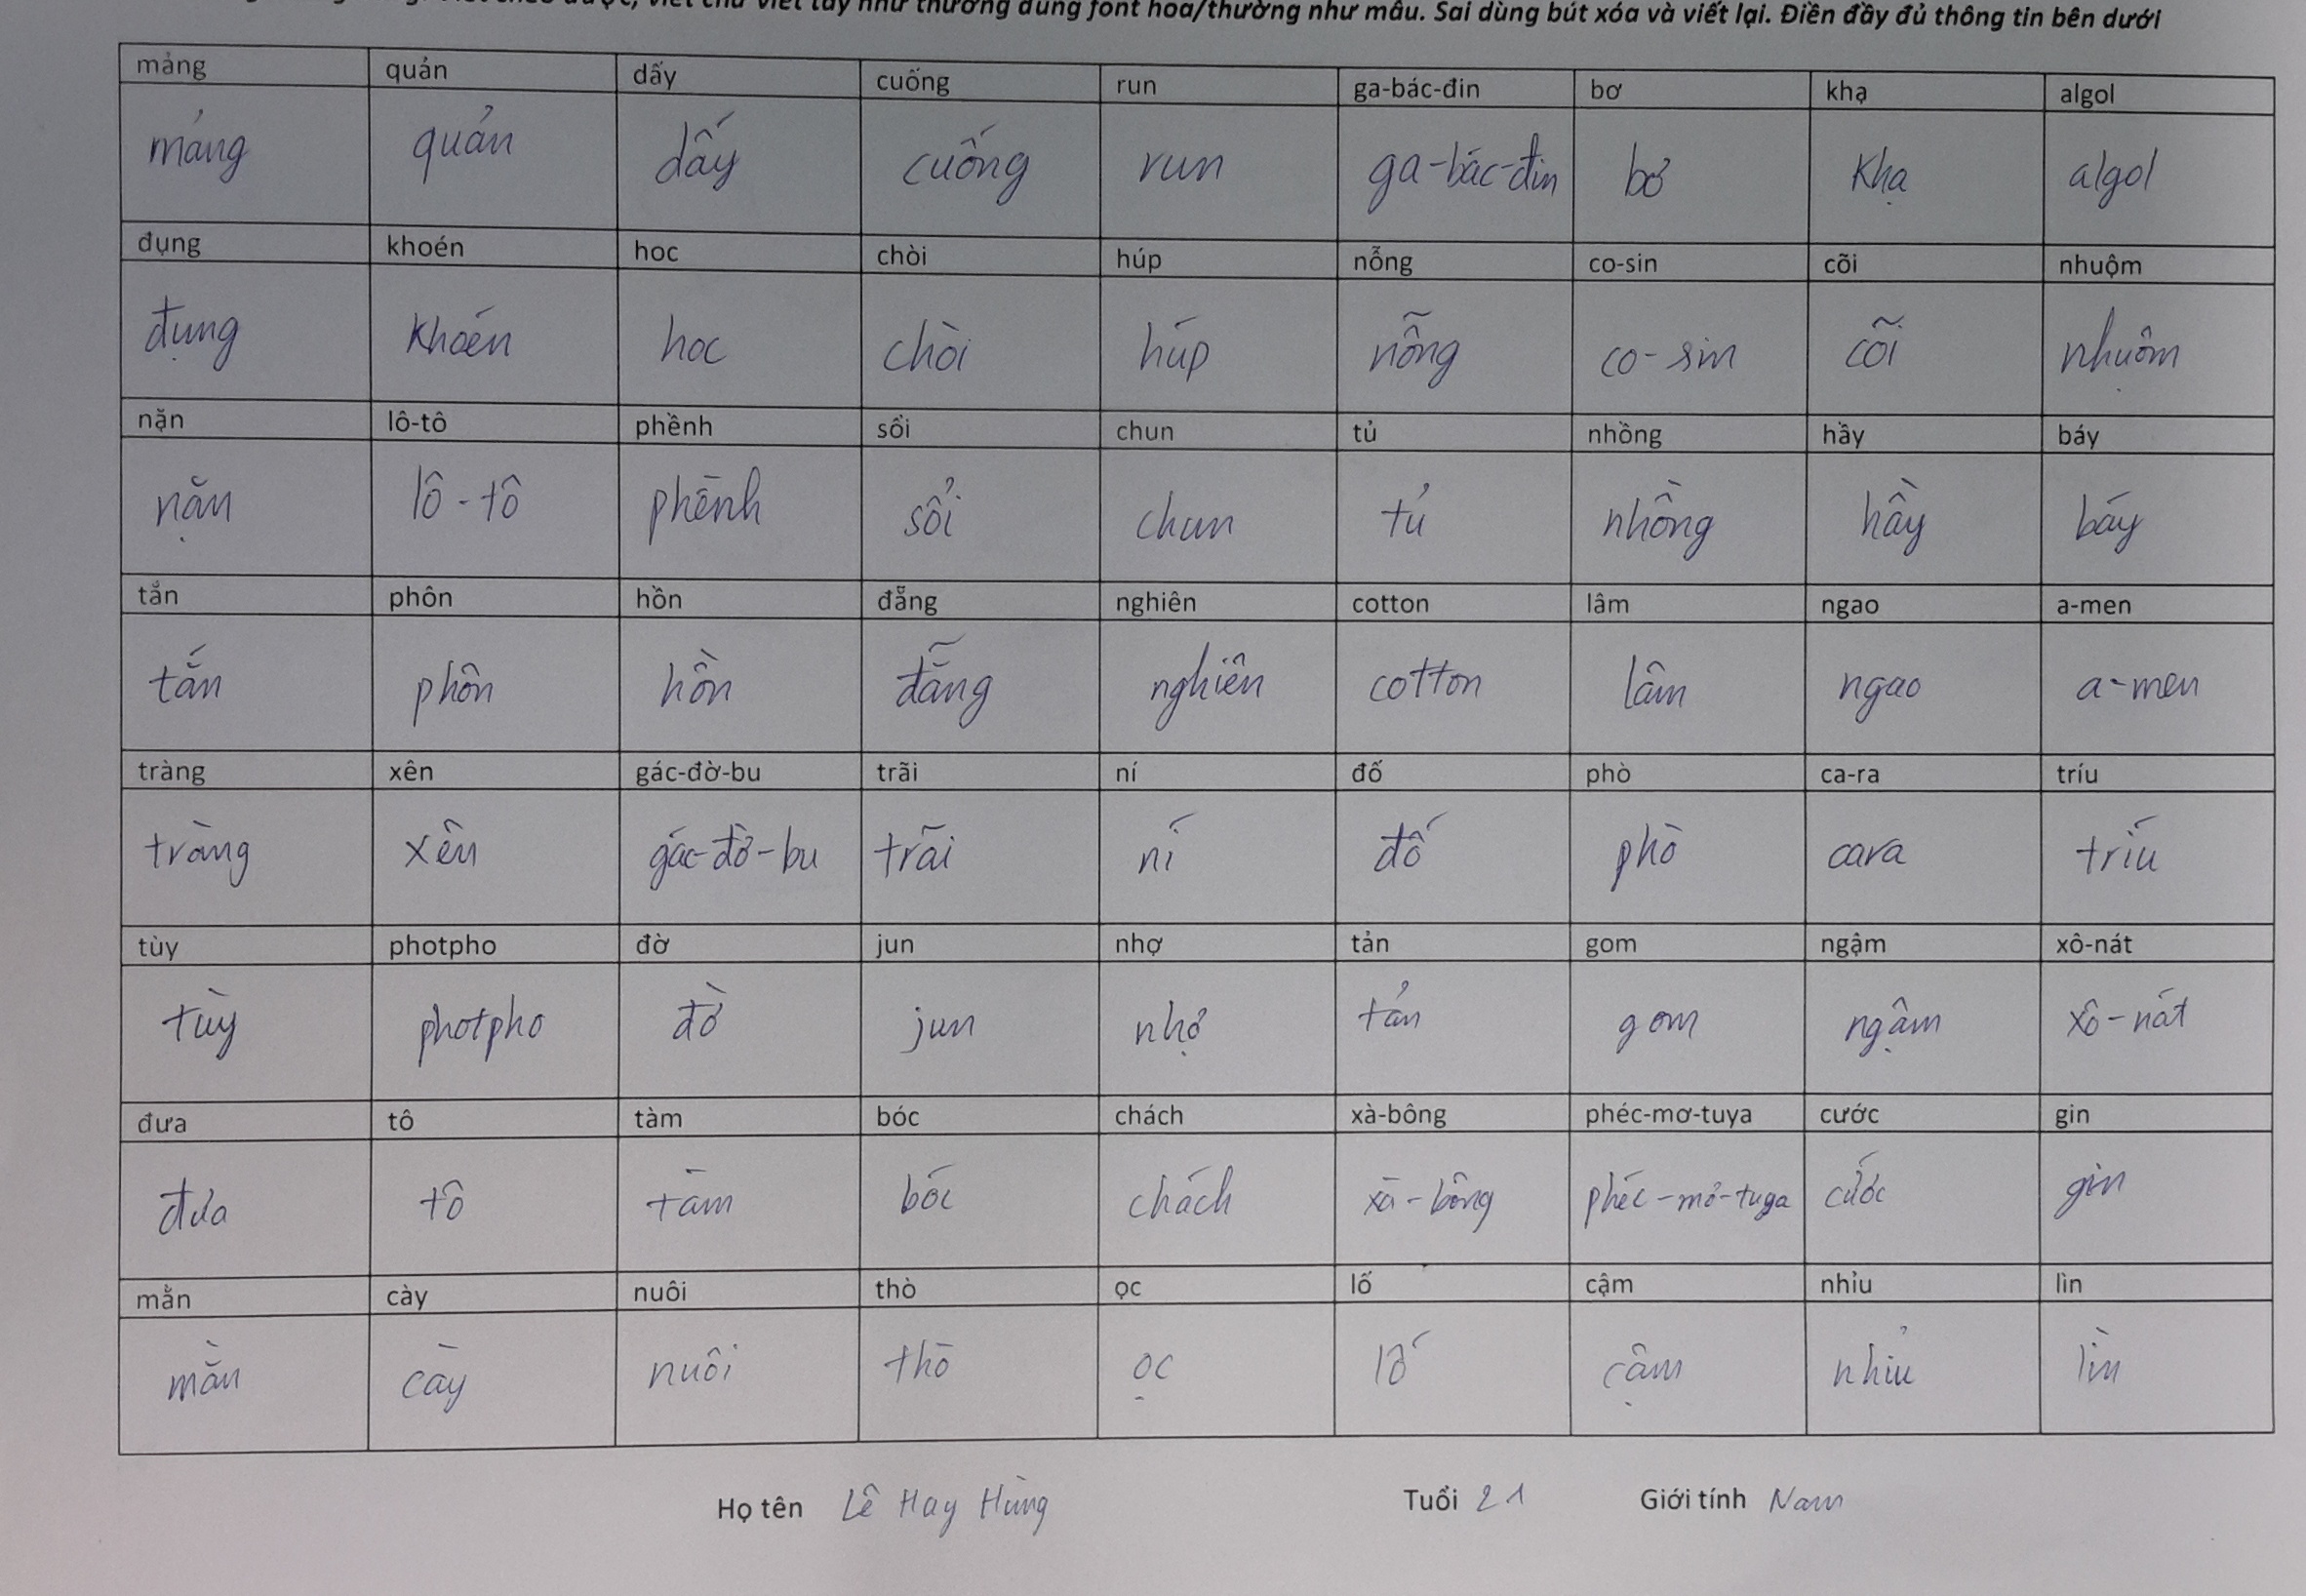 viết chữ viết tay như thường dùng font hoa/thường như mẫu. Sai dùng bút xóa và viết lại. Điền đầy đủ thông tin bên dưới
mảng quản dấy cuống run ga-bác-đin bơ khạ algol
mảng quản dấy cuống run ga-bác-đin bơ khạ algol
đụng khoén hoc chòi húp nỗng co-sin cõi nhuộm
đụng khoén hoc chòi húp nỗng co-sin cõi nhuộm
nặn lô-tô phềnh sổi chun tủ nhồng hầy báy
nặn lô-tô phềnh sổi chun tủ nhồng hầy báy
tắn phôn hồn đẵng nghiên cotton lâm ngao a-men
tắn phôn hồn đẵng nghiên cotton lâm ngao a-men
tràng xên gác-đờ-bu trãi ní đố phò ca-ra tríu
tràng xên gác-đờ-bu trãi ní đố phò cara tríu
tùy photpho đờ jun nhợ tản gom ngậm xô-nát
tùy photpho đờ jun nhợ tản gom ngậm xô-nát
đưa tô tàm bóc chách xà-bông phéc-mơ-tuya cước gin
đưa tô tàm bóc chách xà-bông phéc-mơ-tuya cước gin
mằn cày nuôi thò ọc lố cậm nhỉu lìn
mằn cày nuôi thò ọc lố cậm nhỉu lìn
Họ tên Lê Hay Hùng Tuổi 21 Giới tính Nam